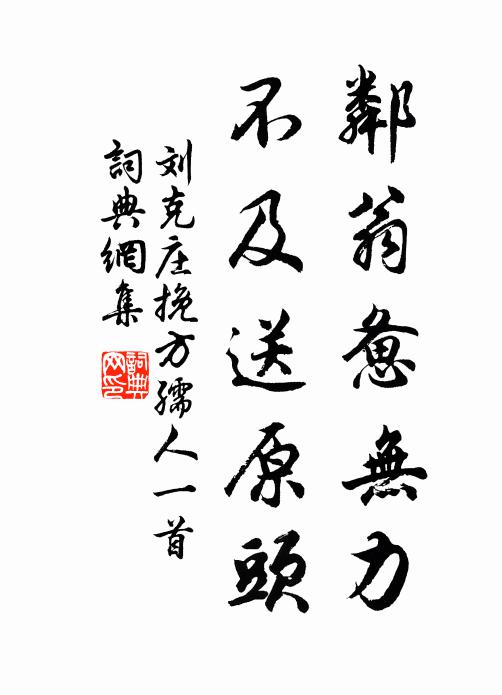 鄰翁惫無力
不及送原頭
刘克庄挽方孺人一首
詞典網集
詞典网印